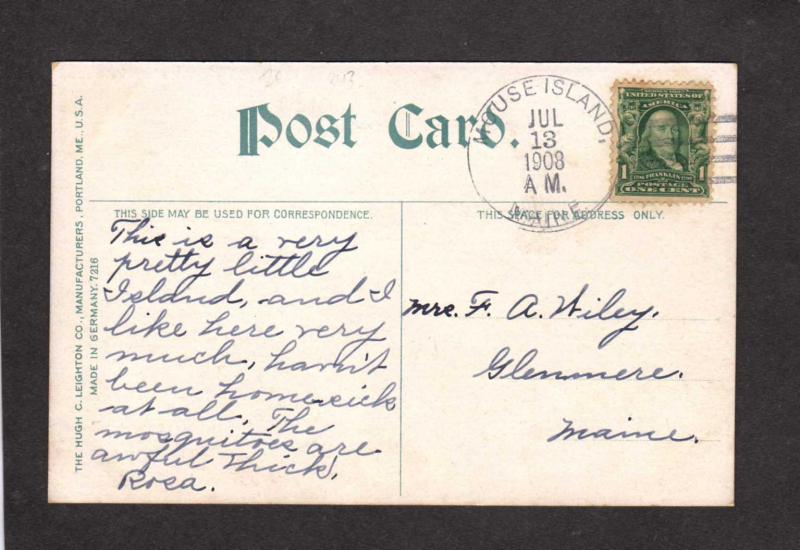 Post Card.
HOUSE ISLAND,
JUL
13
1908
A M.
MAINE
SERIES 1902
UNITED STATES OF
AMERICA
1 FRANKLIN 1
POSTAGE
ONE CENT
THIS SIDE MAY BE USED FOR CORRESPONDENCE.
THIS SPACE FOR ADDRESS ONLY.
This is a very
pretty little
Island, and I
like here very
much, hav'nt
been homesick
at all. The
mosquitoes are
awful thick.
Rosa.
Mrs. F. A. Wiley.
Glenmere.
Maine.
THE HUGH C. LEIGHTON CO., MANUFACTURERS, PORTLAND, ME., U.S.A.
MADE IN GERMANY. 7216